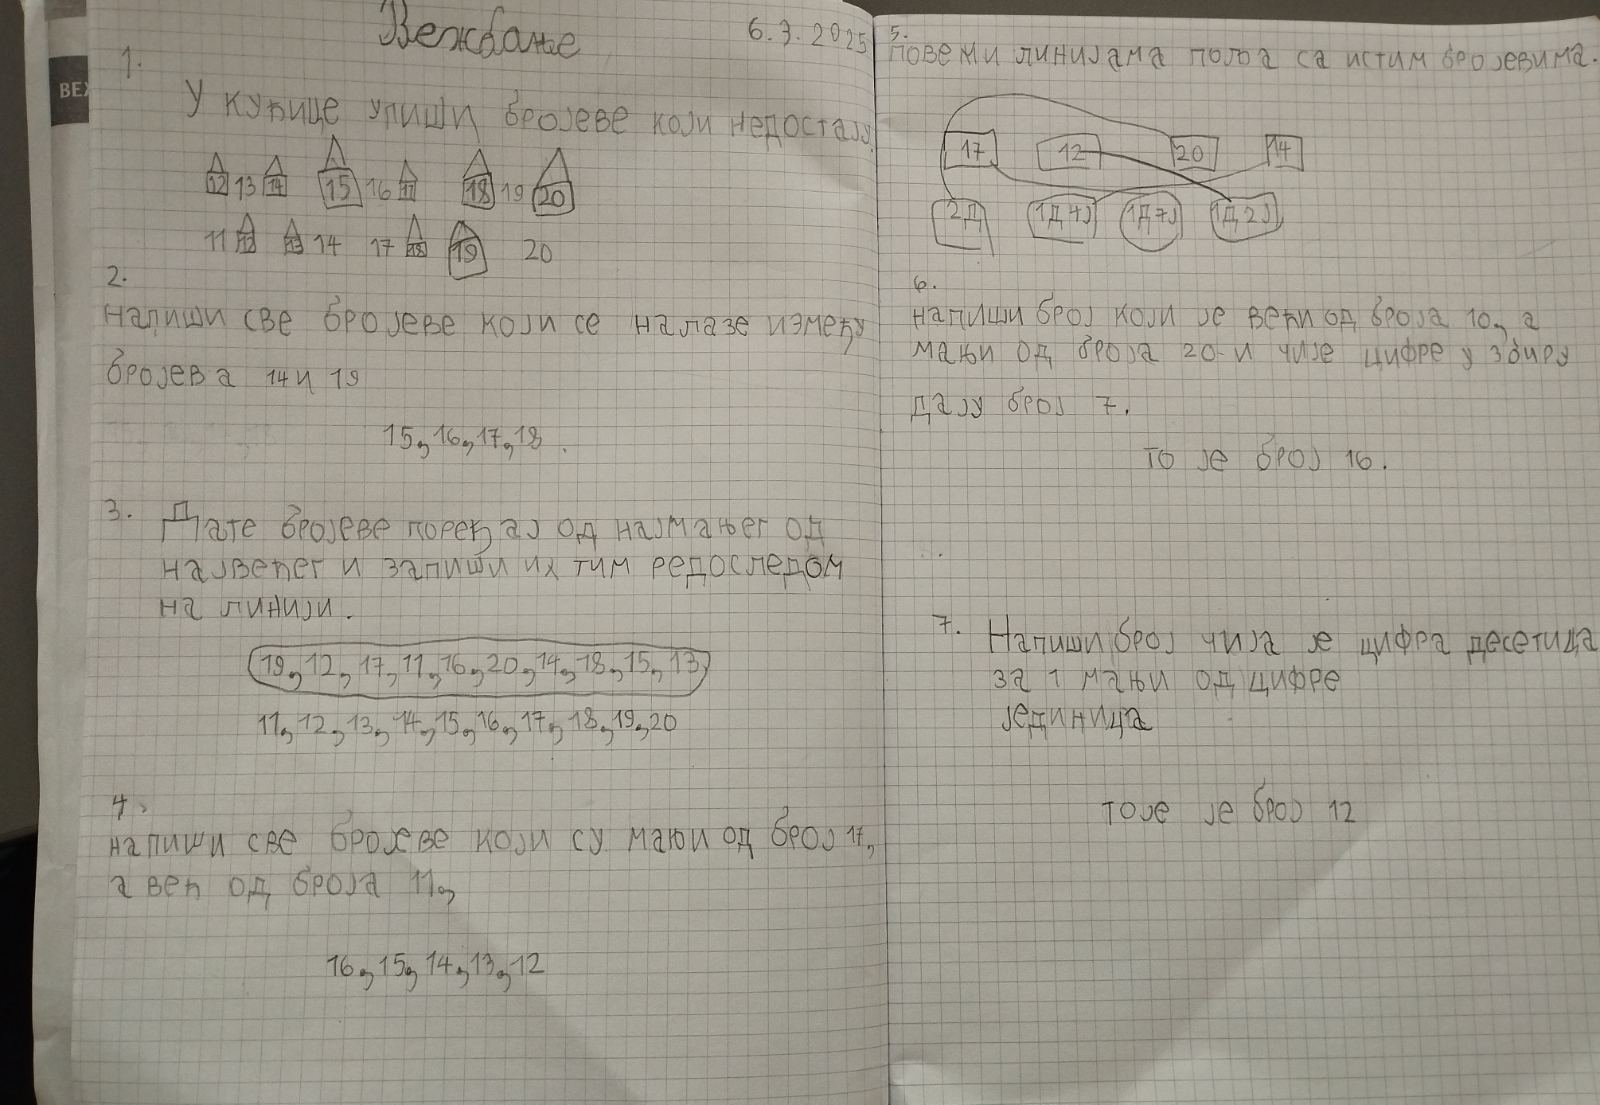 Вежбање
6.3.2025
ВЕЖ
1.
У кућице упиши бројеве који недостају.
12 13 14 15 16 17 18 19 20
11 12 13 14 17 18 19 20
2.
напиши све бројеве који се налазе између
бројева 14 и 19
15, 16, 17, 18.
3. Дате бројеве поређај од најмањег од
највећег и запиши их тим редоследом
на линији.
19, 12, 17, 11, 16, 20, 14, 18, 15, 13
11, 12, 13, 14, 15, 16, 17, 18, 19, 20
4,
напиши све бројеве који су мањи од број 17,
а већ од броја 11,
16, 15, 14, 13, 12
5.
повежи линијама поља са истим бројевима.
17 12 20 14
2Д 1Д4Ј 1Д7Ј 1Д2Ј
6.
напиши број који је већи од броја 10, а
мањи од броја 20 и чије цифре у збиру
дају број 7.
то је број 16.
7. Напиши број чија је цифра десетица
за 1 мањи од цифре
јединица
тоје је број 12